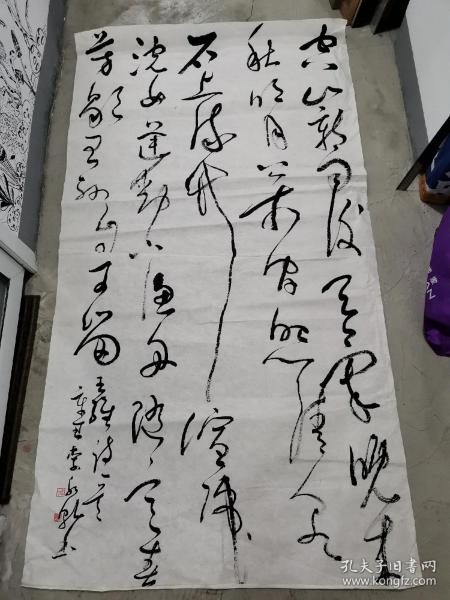 空山新雨後天氣晚來
秋明月松間照清泉
石上流竹喧歸
浣女蓮動下漁舟隨意春
芳歇王孫自可留
王維詩
書
孔夫子旧书网
www.kongfz.com